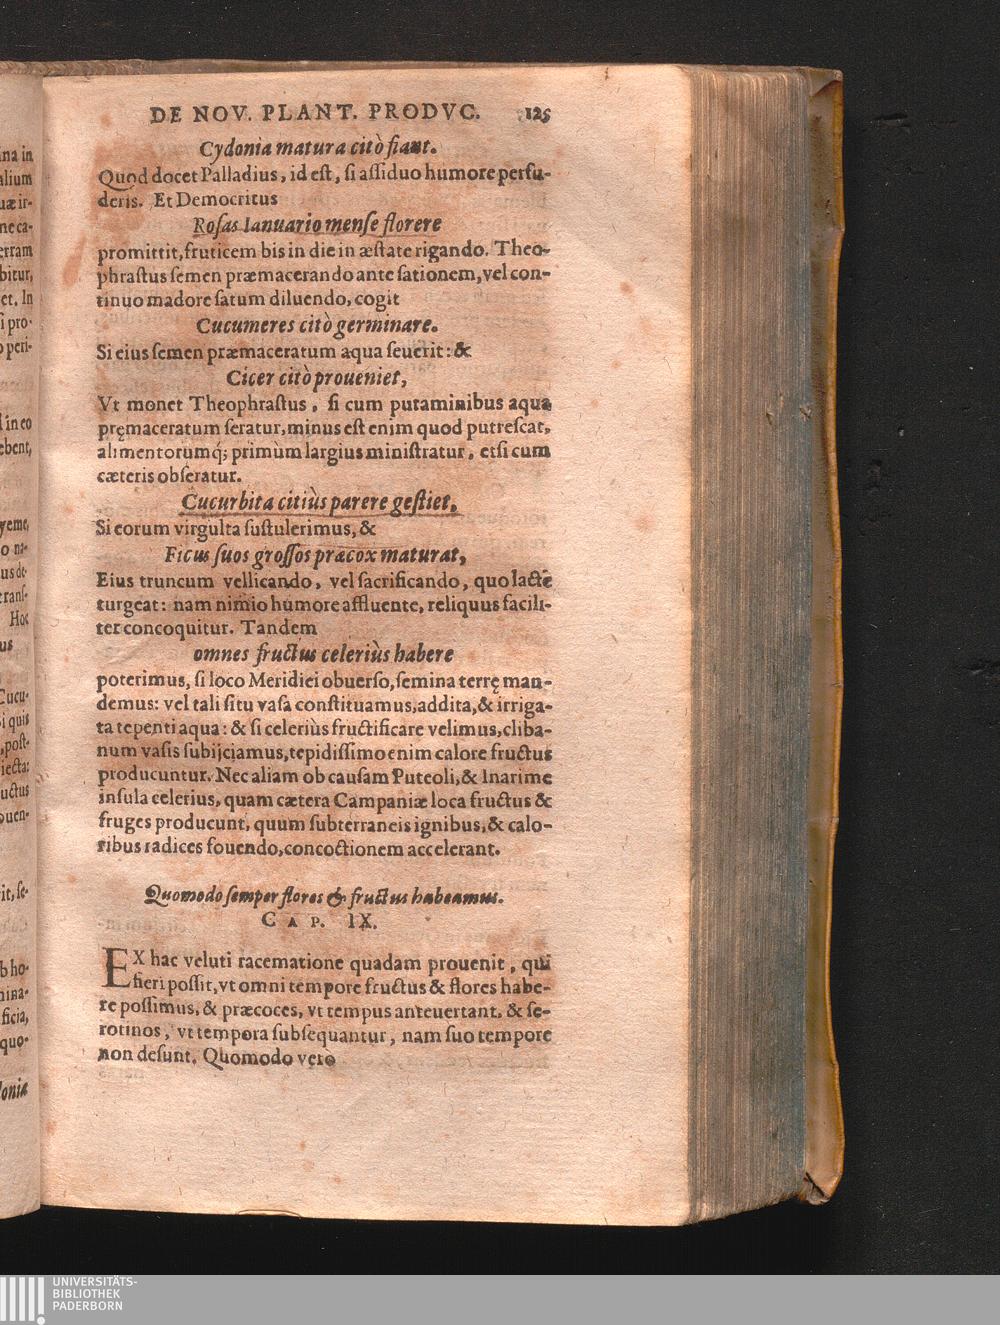 DE NOV. PLANT. PRODVC. 125
Cydonia matura citò fiant.
Quod docet Palladius, id eſt, ſi aſſiduo humore perfu-
deris. Et Democritus
Roſas Ianuario menſe florere
promittit, fruticem bis in die in æſtate rigando. Theo-
phraſtus ſemen præmacerando ante ſationem, vel con-
tinuo madore ſatum diluendo, cogit
Cucumeres citò germinare.
Si eius ſemen præmaceratum aqua ſeuerit: &
Cicer citò proueniet,
Vt monet Theophraſtus, ſi cum putaminibus aqua
pręmaceratum ſeratur, minus eſt enim quod putreſcat,
alimentorumq́; primùm largius miniſtratur, etſi cum
cæteris obſeratur.
Cucurbita citiùs parere geſtiet,
Si eorum virgulta ſuſtulerimus, &
Ficus ſuos groſſos præcox maturat,
Eius truncum vellicando, vel ſacrificando, quo lacte
turgeat: nam nimio humore affluente, reliquus facili-
ter concoquitur. Tandem
omnes fructus celeriùs habere
poterimus, ſi loco Meridiei obuerſo, ſemina terrę man-
demus: vel tali ſitu vaſa conſtituamus, addita, & irriga-
ta tepenti aqua: & ſi celeriùs fructificare velimus, cliba-
num vaſis ſubijciamus, tepidiſſimo enim calore fructus
producuntur. Nec aliam ob cauſam Puteoli, & Inarime
inſula celerius, quam cætera Campaniæ loca fructus &
fruges producunt, quum ſubterraneis ignibus, & calo-
ribus radices fouendo, concoctionem accelerant.
Quomodo ſemper flores & fructus habeamus.
CAP. IX.
EX hac veluti racematione quadam prouenit, qui
fieri poſſit, vt omni tempore fructus & flores habe-
re poſſimus, & præcoces, vt tempus anteuertant, & ſe-
rotinos, vt tempora ſubſequantur, nam ſuo tempore
non deſunt. Quomodo verò
UNIVERSITÄTS-
BIBLIOTHEK
PADERBORN